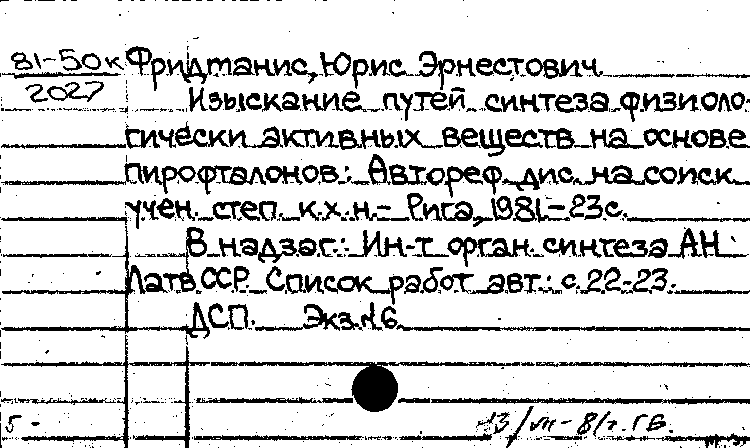 81-50к Фридманис, Юрис Эрнестович
2027
Изыскание путей синтеза физиоло-
гически активных веществ на основе
пирофталонов: Автореф. дис. на соиск
учен. степ. к.х.н. - Рига, 1981. - 23с.
В надзаг.: Ин-т орган. синтеза АН
ЛатвССР. Список работ авт.: с.22-23.
ДСП. Экз. 16
5 -